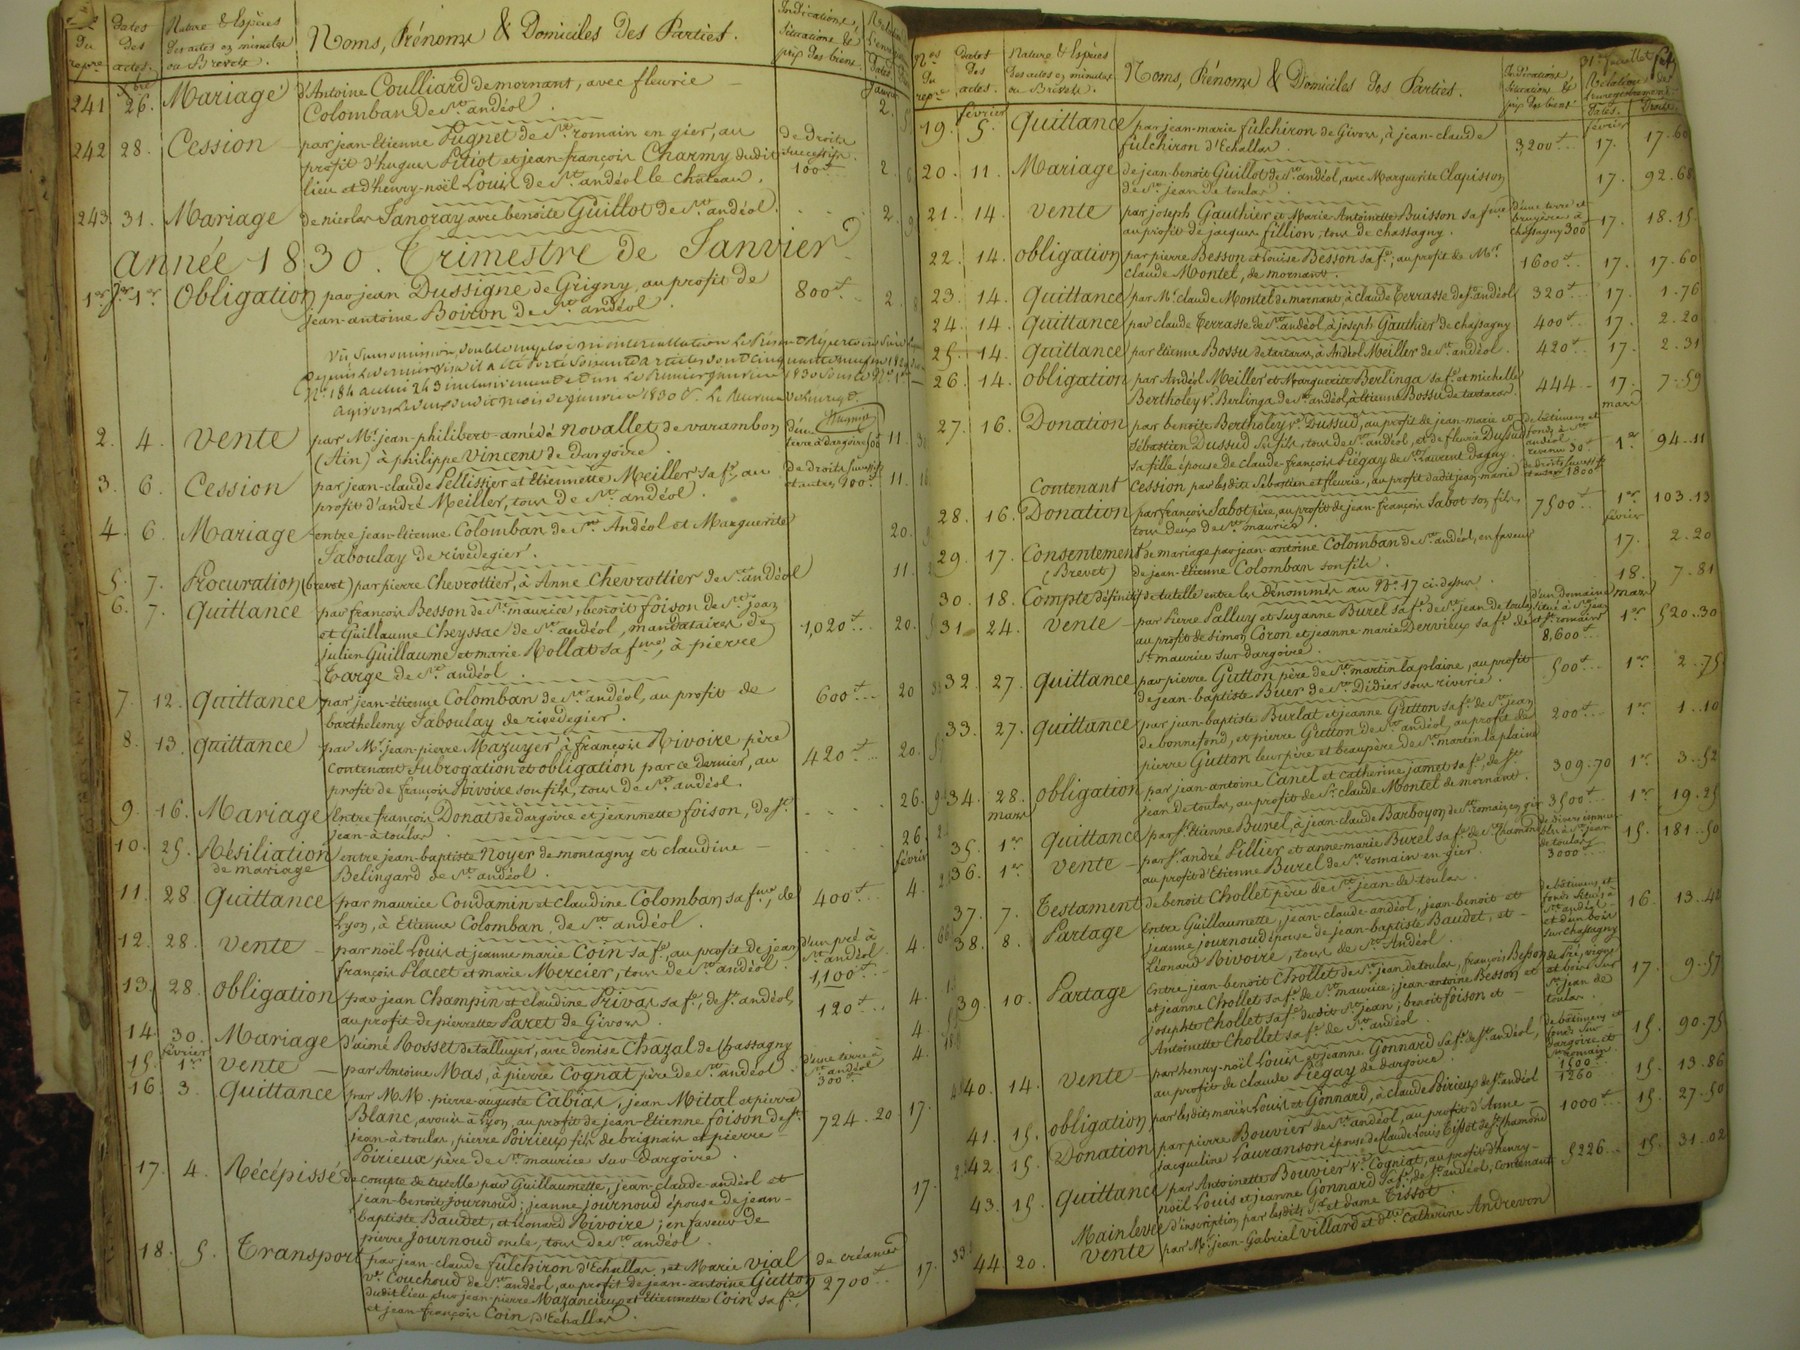 Nos du repre
Dates des actes.
Nature & Espèces des actes en minutes ou Brevets.
Noms, Prénoms & Domiciles des Parties.
Indications, Situations & prix des biens.
241 26. Mariage d'Antoine Coulliard de mornant, avec fleurie
Colomban de St. andéol. 2.
242 28. Cession par jean-Etienne Pugnet de St. romain en gier, au de droits
profit d'hugues Pitiot et jean-françois Charmy dudit successifs.
lieu et d'henry-noël Louis de St. andéol le chateau. 100 2.
243 31. Mariage de nicolas Janoray avec benoite Guillot de St. andéol. 2.
année 1830. Trimestre de Janvier
1er Jer 1er Obligation par jean Dussigne de Grigny, au profit de 800 2.
jean-antoine Boiron de St. andéol.
2. 4. Vente par Mr. jean-philibert-amédé Novallet de varambon
(Ain) à philippe Vincent de dargoire. terre à dargoire 11.
3. 6. Cession par jean-claude Pellissier et Etiennette Meiller sa fe, au de droits successifs
profit d'andré Meiller, tous de St. andéol. et autres 900 11.
4. 6. Mariage entre jean-Etienne Colomban de St. Andéol et Marguerite 20.
Jaboulay de rivedegier.
5. 7. Procuration (brevet) par pierre Chevrottier, à Anne Chevrottier de St. andéol 11.
6. 7. Quittance par françois Besson de St. maurice, benoit foison de St. jean
et Guillaume Cheyssac de St. andéol, mandataires de 1,020 20.
julien Guillaume et marie Rollat sa fme, à pierre
Targe de St. andéol.
7. 12. Quittance par jean-étienne Colomban de St. andéol, au profit de 600 20
barthelemy Jaboulay de rivedegier.
8. 13. Quittance par Mr. jean-pierre Mazuyer, à françois Rivoire père
contenant subrogation et obligation par ce dernier, au 420 20.
profit de françois Rivoire son fils, tous de St. andéol.
9. 16. Mariage Entre françois Donat de dargoire et jeannette foison, de St. 26.
jean-à-toulas.
10. 25. Résiliation entre jean-baptiste Noyer de montagny et claudine 26.
de mariage Belingard de St. andéol. février
11. 28. Quittance par maurice Condamin et claudine Colomban sa fme, de 400 4.
Lyon, à Etienne Colomban, de St. andéol.
12. 28. Vente par noël Louis et jeanne marie Coin sa fe, au profit de jean d'un pré à 4.
françois Placet et marie Mercier, tous de St. andéol. St. andéol 1,100
13. 28. Obligation par jean Champin et claudine Privas sa fe, de St. andéol, 4.
au profit de pierrette Paret de Givors. 120
14. 30. Mariage d'aimé Rosset de talluyer, avec denise Chazal de Chassagny 4.
février
15. 1er Vente par Antoine Mas, à pierre Cognat père de St. andéol. d'une terre à St. andéol 300 4.
16. 3. Quittance par MM. pierre-auguste Cabias, jean Mital et pierre
Blanc, avoués à Lyon, au profit de jean-Etienne foison de St. 724.20 17.
jean-à-toulas, pierre Poirieux fils de brignais et pierre
Poirieux père de St. maurice sur dargoire.
17. 4. Récépissé de compte de tutelle par Guillaumette, jean-claude-andéol et
jean-benoit Journoud; jeanne Journoud épouse de jean- 17.
baptiste Baudet, et Léonard Rivoire; en faveur de
pierre Journoud oncle, tous de St. andéol.
18. 5. Transport par jean-claude fulchiron d'Echallas, et Marie Vial de créances
Ve. Couchoud de St. andéol, au profit de jean-antoine Gutton 2700 17.
dudit lieu sur jean-pierre Mazancieux et Etiennette Coin sa fe,
et jean-françois Coin, d'Echallas.
Nos du repre
Dates des actes.
Nature & Espèces des actes en minutes ou Brevets.
Noms, Prénoms & Domiciles des Parties.
Indications, Situations & prix des biens
Dates. Droits
février
19. 5. Quittance par jean-marie fulchiron de Givors, à jean-claude
fulchiron d'Echallas. 3,200 17. 17.60
20. 11. Mariage de jean-benoit Guillot de St. andéol, avec Marguerite Clapisson 17. 92.68
de St. jean de toulas.
21. 14. Vente par joseph Gauthier et Marie Antoinette Buisson sa feme d'une terre et bruyère à
au profit de jacques fillion, tous de chassagny. chassagny 300 17. 18.15
22. 14. Obligation par pierre Besson et Louise Besson sa fe, au profit de Mr. 1600 17. 17.60
claude Montel, de mornant.
23. 14. Quittance par Mr. claude Montel de mornant, à claude Terrasse de St. andéol 320 17. 1.76
24. 14. Quittance par claude Terrasse de St. andéol, à joseph Gauthier de chassagny 400 17. 2.20
25. 14. Quittance par Etienne Bossu de tartaras, à Andéol Meiller de St. andéol. 420 17. 2.31
26. 14. Obligation par Andéol Meiller et Marguerite Berlinga sa fe. et michelle 444 17. 7.59
Bertholey Ve. Berlinga de St. andéol, à Etienne Bossu de tartaras. mars
27. 16. Donation par benoite Bertholey Ve. Dussud, au profit de jean-marie et de bâtimens et
Sébastien Dussud ses fils, tous de St. andéol, et de fleurie Dussud fonds à St. andéol 1er 94.11
sa fille épouse de claude-françois Piégay de St. Laurent dagny. revenu 30
Contenant Cession par lesdits Sébastien et fleurie, au profit dudit jean-marie de droits successifs et autres 1800
28. 16. Donation par françois Sabot père, au profit de jean-françois Sabot son fils 7,500 1er 103.13
tous deux de St. maurice. février
29. 17. Consentement de mariage par jean-antoine Colomban de St. andéol, en faveur 17. 2.20
(Brevet) de jean-Etienne Colomban son fils.
30. 18. Compte définitif de tutelle entre les dénommés au No. 17 ci-dessus. 18. 7.81
31. 24. Vente par Pierre Palluy et Suzanne Burel sa fe. de St. jean de toulas d'un domaine mars
au profit de Simon Coron et jeanne marie Dervieux sa fe. de situé à St. jean et St. romain 1er 520.30
St. maurice sur dargoire. 8,600
32. 27. Quittance par pierre Gutton père de St. martin la plaine, au profit 500 1er 2.75
de jean-baptiste Buer de St. Didier sous riverie.
33. 27. Quittance par jean-baptiste Burlat et jeanne Gutton sa fe. de St. jean 200 1er 1.10
de bonnefond, et pierre Gutton de St. andéol, au profit de
pierre Gutton leur père et beaupère de St. martin la plaine
34. 28. Obligation par jean-antoine Canel et catherine jamet sa fe, de St. 309.70 1er 3.52
mars jean de toulas, au profit de Sr. claude Montel de mornant.
35. 1er Quittance par Sr. Etienne Burel, à jean-claude Barboyon de St. romain en gier 3500 1er 19.25
36. 1er Vente par Sr. andré Pillier et anne-marie Burel sa fe. de St. Chamond de divers immeubles à St. jean 15. 181.50
au profit d'Etienne Burel de St. romain en gier. de toulas 3000
37. 7. Testament de benoit Chollet père de St. jean de toulas.
38. 8. Partage Entre Guillaumette, jean-claude-andéol, jean-benoit et de bâtimens et fonds situés à 16. 13.42
jeanne journoud épouse de jean-baptiste Baudet, et St. andéol et d'un bois
Léonard Rivoire, tous de St. Andéol. sur Chassagny
39. 10. Partage Entre jean-benoit Chollet de St. jean de toulas, françois Besson de Pré, vignes 17. 9.57
et jeanne Chollet sa fe. de St. maurice; jean-antoine Besson et et bois sur
josephte Chollet sa fe. dudit St. jean; benoit foison et St. jean de
Antoinette Chollet sa fe. de St. andéol. toulas.
40. 14. Vente par henry-noël Louis et jeanne Gonnard sa fe. de St. andéol, de bâtimens et fonds sur 15. 90.75
au profit de claude Piégay de dargoire. dargoire et St. romain 1500
41. 15. Obligation par lesdits mariés Louis et Gonnard, à claude Poirieux de St. andéol 1260 15. 13.86
42. 15. Donation par pierre Bouvier de St. andéol, au profit d'Anne 1000 15. 27.50
jacqueline Lauranson épouse de claude Louis Tissot de St. Chamond
43. 15. Quittance par Antoinette Bouvier Ve. Cogniat, au profit d'henry- 5226 15. 31.02
noël Louis et jeanne Gonnard sa fe. de St. andéol; contenant
Mainlevée d'inscription par lesdits Sr. et dame Tissot.
44 20. Vente par Mr. jean-Gabriel Villard et de. Catherine Andrevon